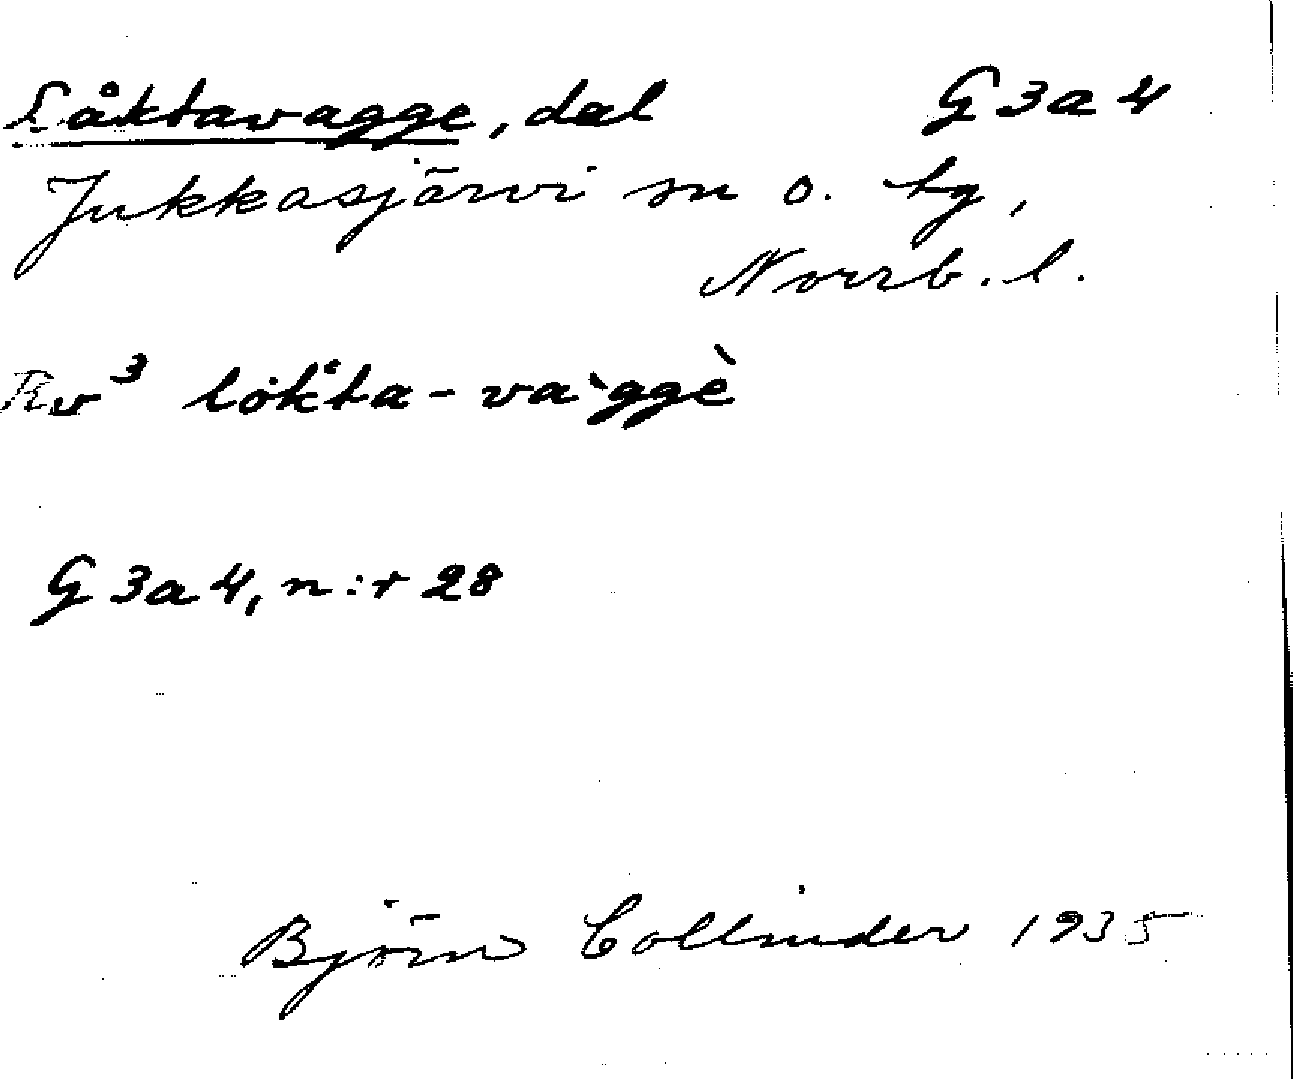 Låktavagge, dal G3a4
Jukkasjärvi sn o. tg,
Norrb. l.
Rv³ lok̀ta-vàggè
G3a4, n:r 28
Björn Collinder 1935